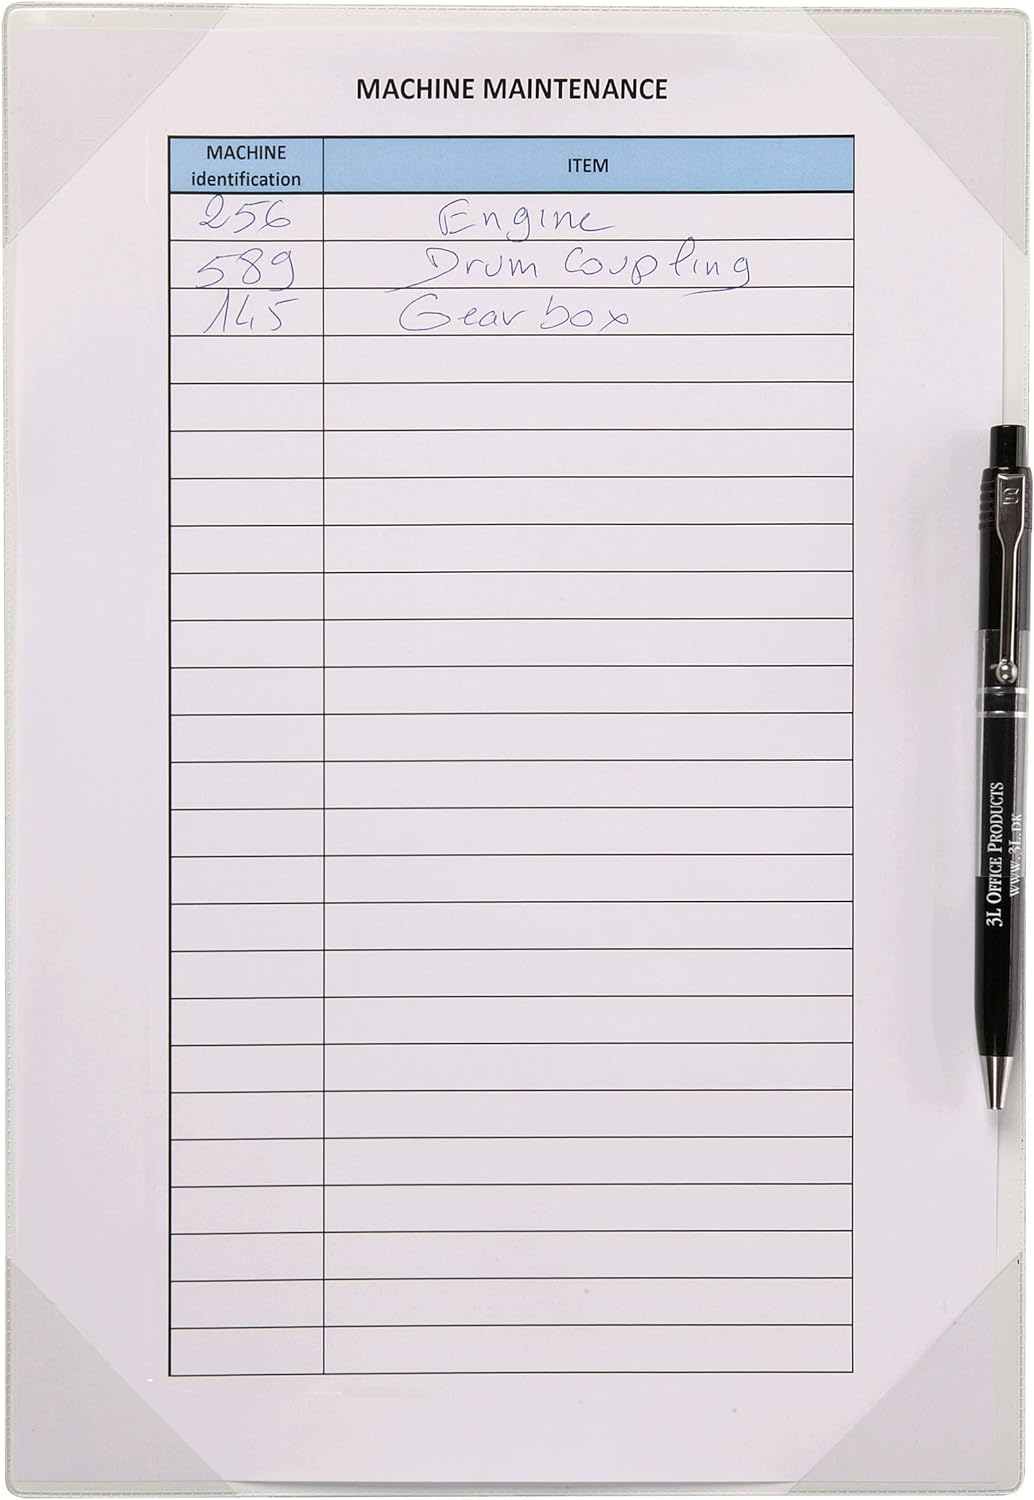 MACHINE MAINTENANCE
MACHINE
identification
ITEM
256 Engine
589 Drum Coupling
145 Gear box
3L OFFICE PRODUCTS
WWW.3L.DK